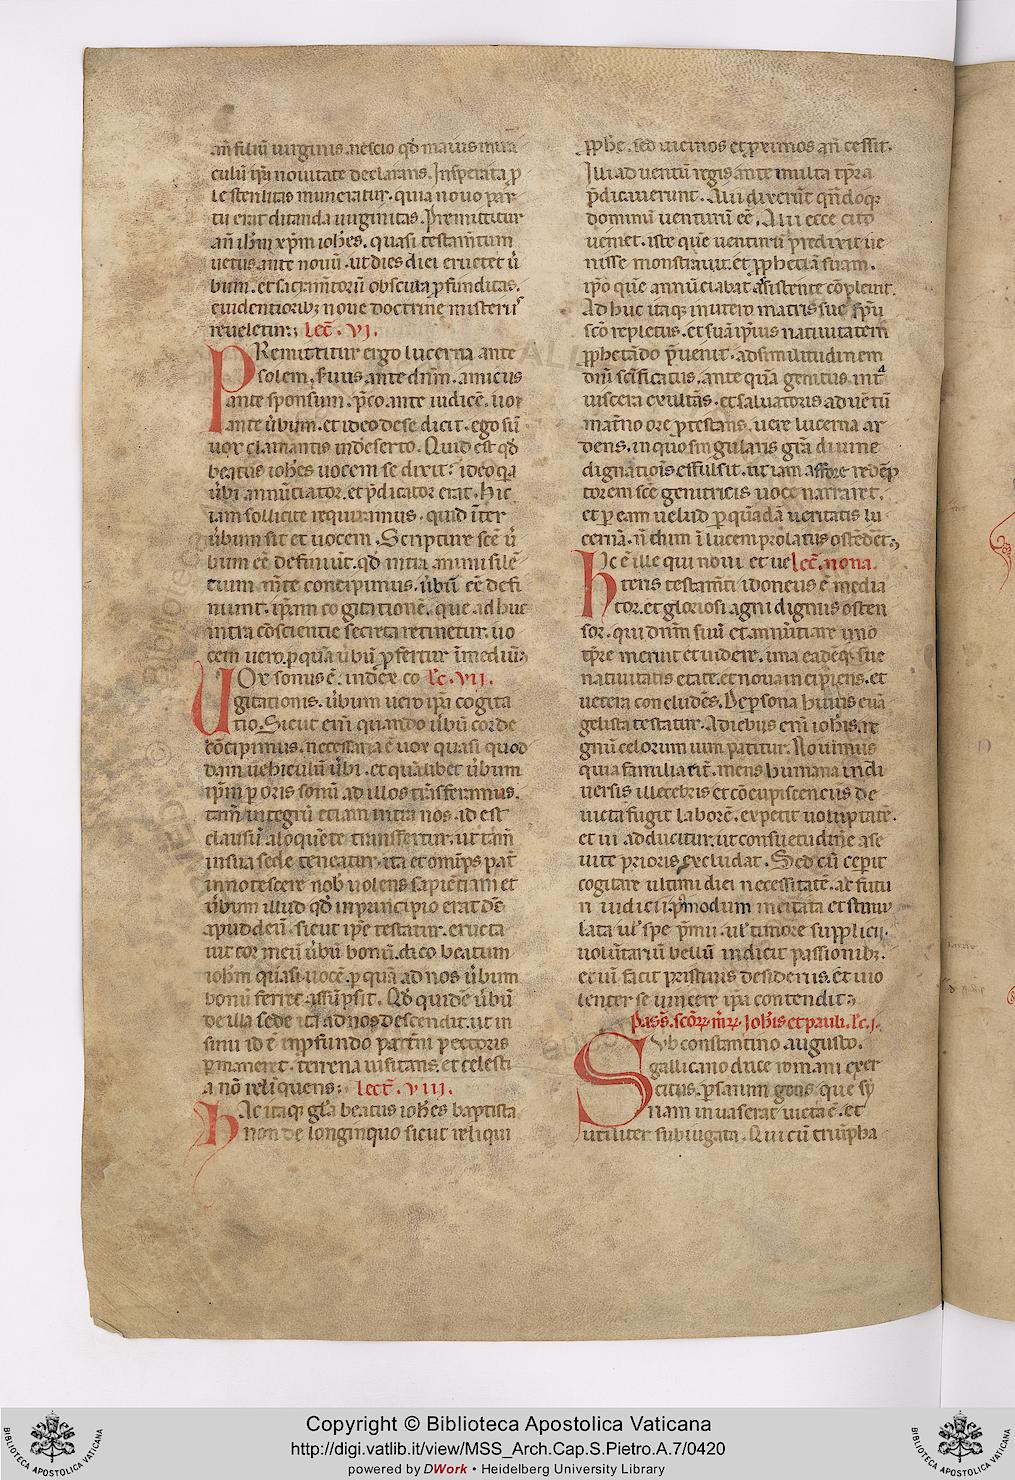 añ filiũ uirginis. nescio qđ maius mira
culũ ipĩ nouitate declarans. Insperata p
le sterilitas muneratur. quia nouo par
tu erat ditanda uirginitas. Premittitur
añ ih̃m xp̃m ioħes. quasi testam̃tum
uetus ante nouũ. ut dies diei eructet ũ
bum. et sacram̃torũ obscura ꝓfunditas.
euidentiorib; noue doctrine misterii
reueletur; Lect̃. VI.
PRemittitur ergo lucerna ante
solem. s̃uus ante dñm. amicus
ante sponsum. p̃co ante iudicẽ. uox
ante ũbum. et ideo de se dicit. ego sũ
uox clamantis in deserto. Quid est qđ
beatus ioħes uocem se dixit? ideo qa
ũbi annũtiator. et p̃dicator erat. Hic
iam sollicite requiramus. quid ĩter
ũbum sit et uocem. Scripture scẽ ũ
bum eẽ definiũt. qđ intra animi silẽ
tium m̃te concipimus. ũbũ eẽ defi
niunt. ip̃am cogitationẽ. que adhuc
intra cõscientie secreta retinetur. uo
cem uero. ꝑ quã ũbũ ꝓfertur ĩ mediũ;
UOx sonus ẽ. index co Lc̃. VII.
gitationis. ũbum uero ip̃a cogita
tio. Sicut eñi quando ũbũ corde
cõcipimus. necessaria ẽ uox quasi quod
dam uehiculũ ũbi. et qualibet ũbum
ip̃m ꝑ oris sonũ ad illos trãsferamus.
tam̃ integrũ etiam intra nos. id est
clausũ a loquẽte transfertur. ut tam̃
in sua sede teneatur. ita et omĩps pat̃
innotescere nob̃ uolens sapiẽtiam et
ũbum illud qđ in principio erat dẽ
apud deũ. sicut ip̃e testatur. eructa
uit cor meũ ũbũ bonũ. dico beatum
ioħm quasi uocẽ. ꝑ quã ad nos ũbum
bonũ ferret assũpsit. Qđ quidẽ ũbũ
de illa sede ita ad nos descendit. ut in
sinu id ẽ in ꝓfundo pat̃ni pectoris
ꝑmaneret. terrena uisitans. et celesti
a nõ relĩquens; Lect̃. VIII.
HAc itaqꝫ gr̃a beatus ioħes baptista
non de longinquo sicut reliqui
ꝓphe. sed uicinos et proximos añ cessit.
Illi aduentũ regis ante multa tp̃ra
p̃dicauerunt. Alii dixerũt qñdoqꝫ
dominũ uenturũ eẽ. Alii ecce cito
ueniet. iste quẽ uenturũ predixit ue
nisse monstrauit. et ꝓphetiã suam.
ip̃o quẽ annũciabat assistente cõpleuit.
Adhuc itaqꝫ in utero matris sue sp̃u
sc̃o repletus. et suã ip̃ius natiuitatem
ꝓphetãdo p̃uenit. ad similitudinem
dñi sc̃ificatus. ante quã genitus. int̃
uiscera exultãs. et saluatoris aduẽtũ
mat̃no ore ꝓtestans. uere lucerna ar
dens. in quo singularis gr̃a diuine
dignatiois effulsit. ut iam affore redẽp
torem scẽ genitricis uoce narraret.
et ꝑ eam uelud ꝑ quãdã ueritatis lu
cernã. ñ dum ĩ lucem prolatus ostẽdẽt;
HIc ẽ ille qui noui et ue Lect̃. nona.
teris testam̃ti idoneus ẽ media
tor. et gloriosi agni dignus osten
sor. qui dñm suũ et annũtiare uno
tp̃re meruit et uidere. una eadẽqꝫ sue
natiuitatis etate. et noua incipiens. et
uetera concludẽs. De ꝑsona huius euã
gelista testatur. A diebus eñi ioħis. re
gnũ celorum uim patitur. Nouimus
quia familiarit̃. mens humana in di
uersis illecebris et cõcupiscenciis de
uicta fugit laborẽ. expetit uoluptatẽ.
et ui adducitur. ut consuetudinẽ a se
uite prioris excludat. Sed cũ ceperit
cogitare ultimi diei necessitatẽ. ac futu
ri iudicii. quẽadmodum incitata et stimu
lata uł spe p̃mii. uł timore supplicii.
uolũtariũ bellũ indicit passionib;.
et uĩ facit pristinis desideriis. et uio
lenter se uincere ip̃a contendit;
Pass̃. sc̃oꝝ. m̃ꝝ. Ioħis et pauli. Lc̃. I.
SVb constantino augusto.
gallicano duce romani exer
citus. persarum gens que sy
riam inuaserat uicta ẽ. et
utiliter subiugata. Qui cũ triũpha
Copyright © Biblioteca Apostolica Vaticana
http://digi.vatlib.it/view/MSS_Arch.Cap.S.Pietro.A.7/0420
powered by DWork • Heidelberg University Library
BIBLIOTECA APOSTOLICA VATICANA
BIBLIOTECA APOSTOLICA VATICANA